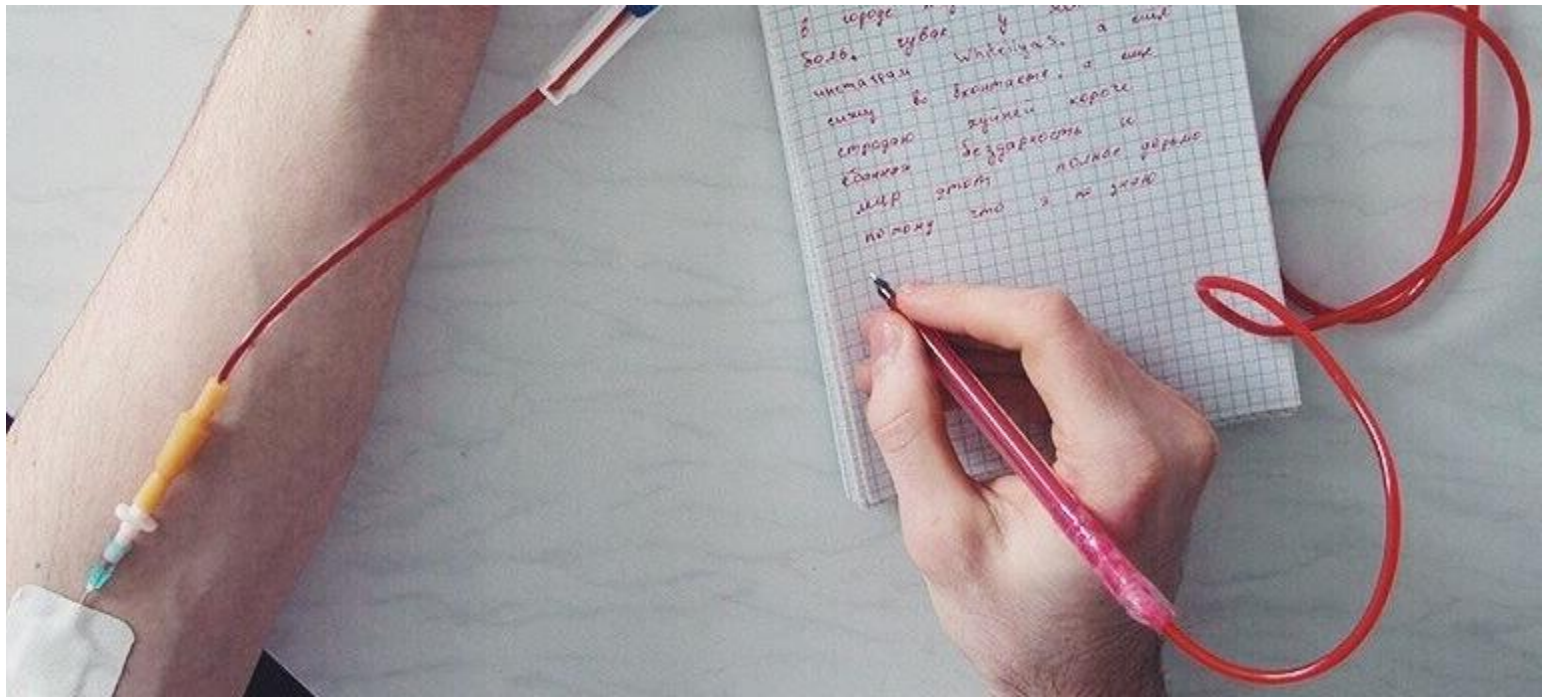 в городе
боль, чувак у
инстаграм Whiteigas. а ещё
сижу во вконтакте. а ещё
стродаю хуйней короче
ебанная бездарность и
мир этот полное дерьмо
потому что я т знаю